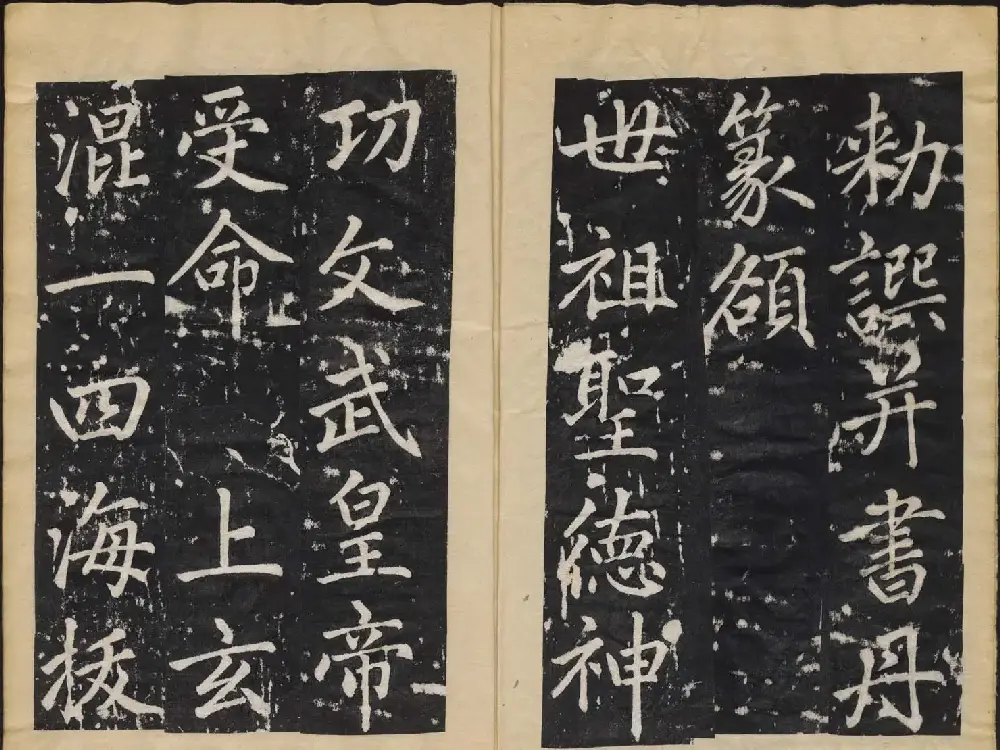 勑譔并書丹
篆額
世祖聖德神
功文武皇帝
受命 上玄
混一四海拔